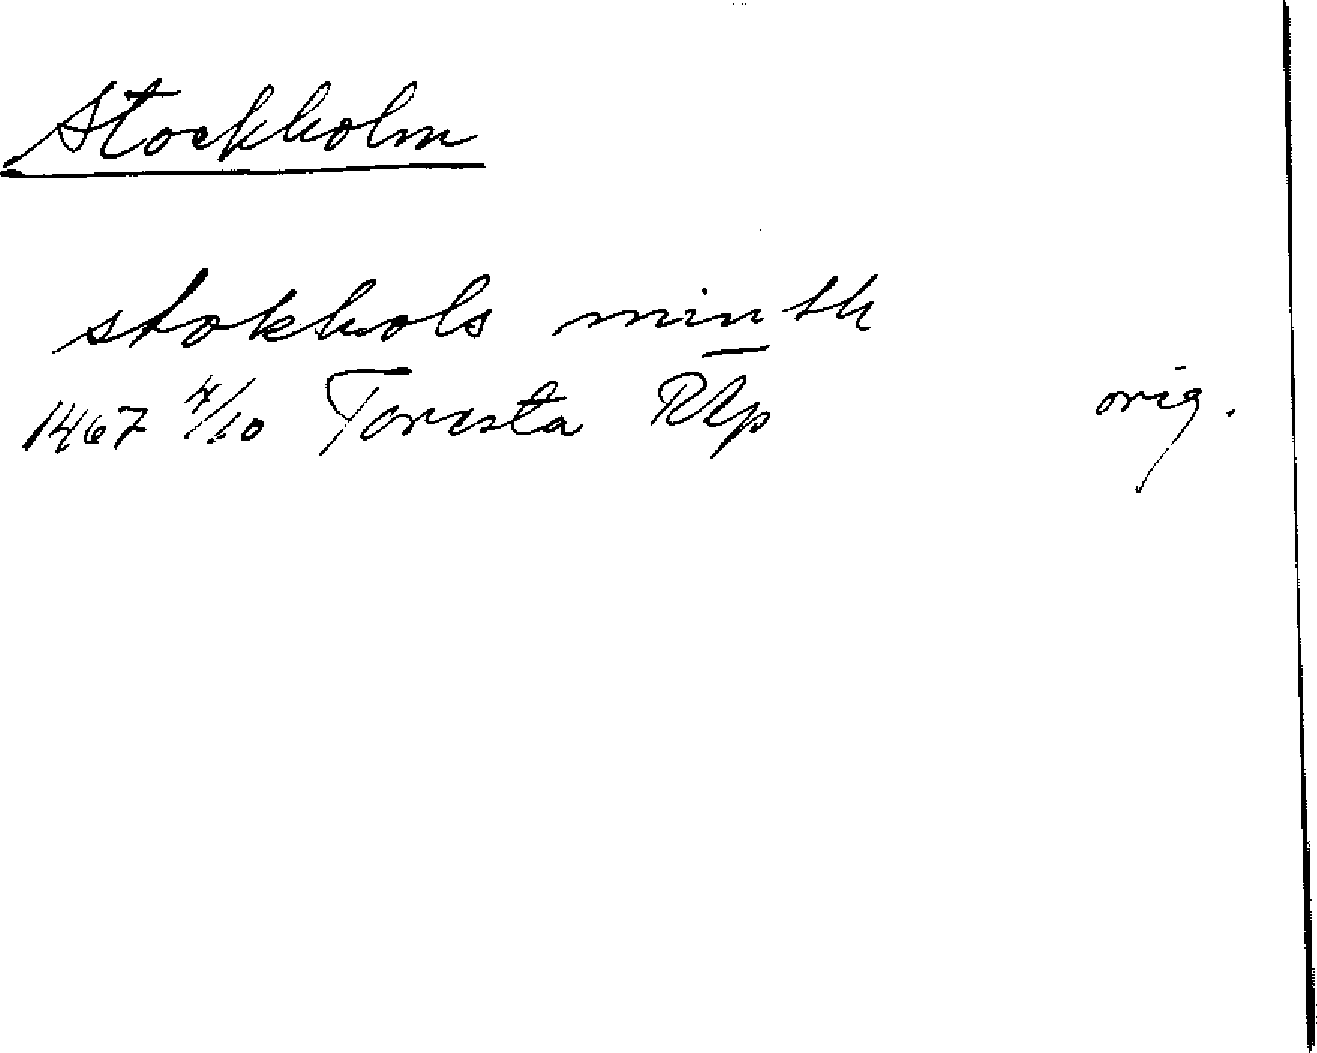 Stockholm
stokhols minth
1467 4/10 Toresta RAp orig.